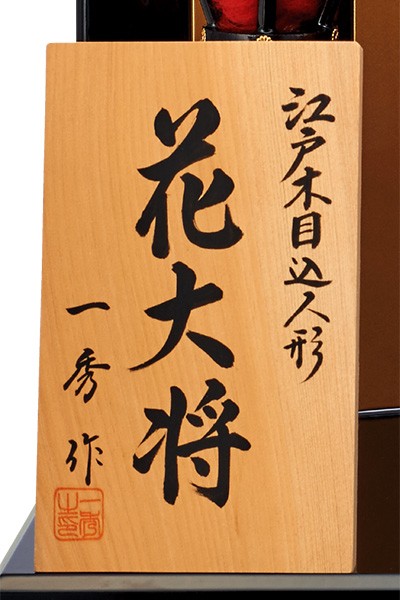 江戸木目込人形
花大将
一秀作
一秀之印